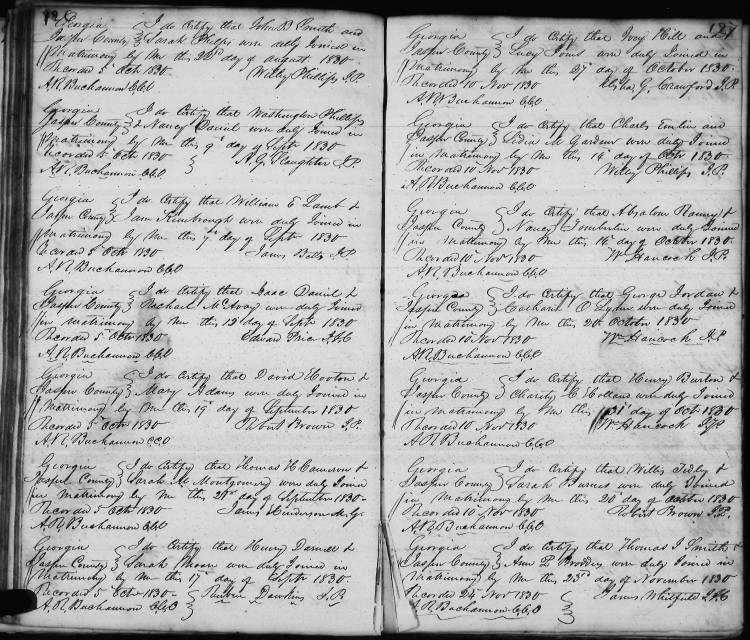 Georgia I do Certify that John B Smith and
Jasper County Sarah Phelps were duly Joined in
Matrimony by Me this 22d day of august 1830
Recorded 5 Octr 1830 Willy Phillips J.P.
A R Buchannon CCO
Georgia I do Certify that Washington Phillips
Jasper County & Nancy Daniel were duly Joined in
Matrimony by Me this 9th day of Septr 1830
Recorded 5th Octr 1830 A. G. Slaughter J.P.
A R Buchannon CCO
Georgia I do Certify that William E Lamb &
Jasper County Kimbrough were duly Joined in
Matrimony by Me this day of Septr 1830
Recorded 5 Octr 1830 James Betts J.P.
A R Buchannon CCO
Georgia I do Certify that Isaac Daniel &
Jasper County Rachael McAvoy were duly Joined
in Matrimony by Me this 12th day of Septr 1830
Recorded 5 Octr 1830 Edward Price
A R Buchannon CCO
Georgia I do Certify that David Hooton &
Jasper County Mary Adams were duly Joined in
Matrimony by Me this 19th day of September 1830
Recorded 5 Octr 1830 Robert Brown J.P.
A R Buchannon CCO
Georgia I do Certify that Thomas H Cameron &
Jasper County Sarah M Montgomery were duly Joined
in Matrimony by Me this 23d day of September 1830
Recorded 5 Octr 1830 James Henderson M.G.
A R Buchannon CCO
Georgia I do Certify that Henry Darnell &
Jasper County Sarah Moore were duly Joined in
Matrimony by Me this 17 day of Septr 1830
Recorded 5 Octr 1830 Dawkins J.P
A R Buchannon CCO
127
Georgia I do Certify that Hill and
Jasper County Lucy Jones were duly Joined in
Matrimony by Me this 27th day of October 1830
Recorded 10 Nov 1830 G Crawford J.P
A R Buchannon CCO
Georgia I do Certify that Charles and
Jasper County Lidia M Gardner were duly Joined
in Matrimony by Me this 14th day of Octr 1830
Recorded 10 Novr 1830 Willy Phillips J.P.
A R Buchannon CCO
Georgia I do Certify that Absalom Ramey &
Jasper County Nancy Tomberlin were duly Joined
in Matrimony by Me this 16th day of October 1830
Recorded 10 Novr 1830 Wm Hancock J.P.
A R Buchannon CCO
Georgia I do Certify that George Jordan &
Jasper County were duly Joined
in Matrimony by Me this 20th October 1830
Recorded 10 Novr 1830 Wm Hancock J.P
A R Buchannon CCO
Georgia I do Certify that Henry Burton &
Jasper County Charity C Holland were duly Joined
in Matrimony by Me this 31st day of Octr 1830
Recorded 10 Novr 1830 Wm Hancock J.P
A R Buchannon CCO
Georgia I do Certify that Willis &
Jasper County Sarah were duly Joined
in Matrimony by Me this 20th day of October 1830
Recorded 10 Novr 1830 Robert Brown J.P.
A R Buchannon CCO
Georgia I do Certify that Thomas J Smith &
Jasper County Ann P were duly Joined in
Matrimony by Me this 23d day of November 1830
Recorded 24 Novr 1830 James Whitfield
A R Buchannon CCO